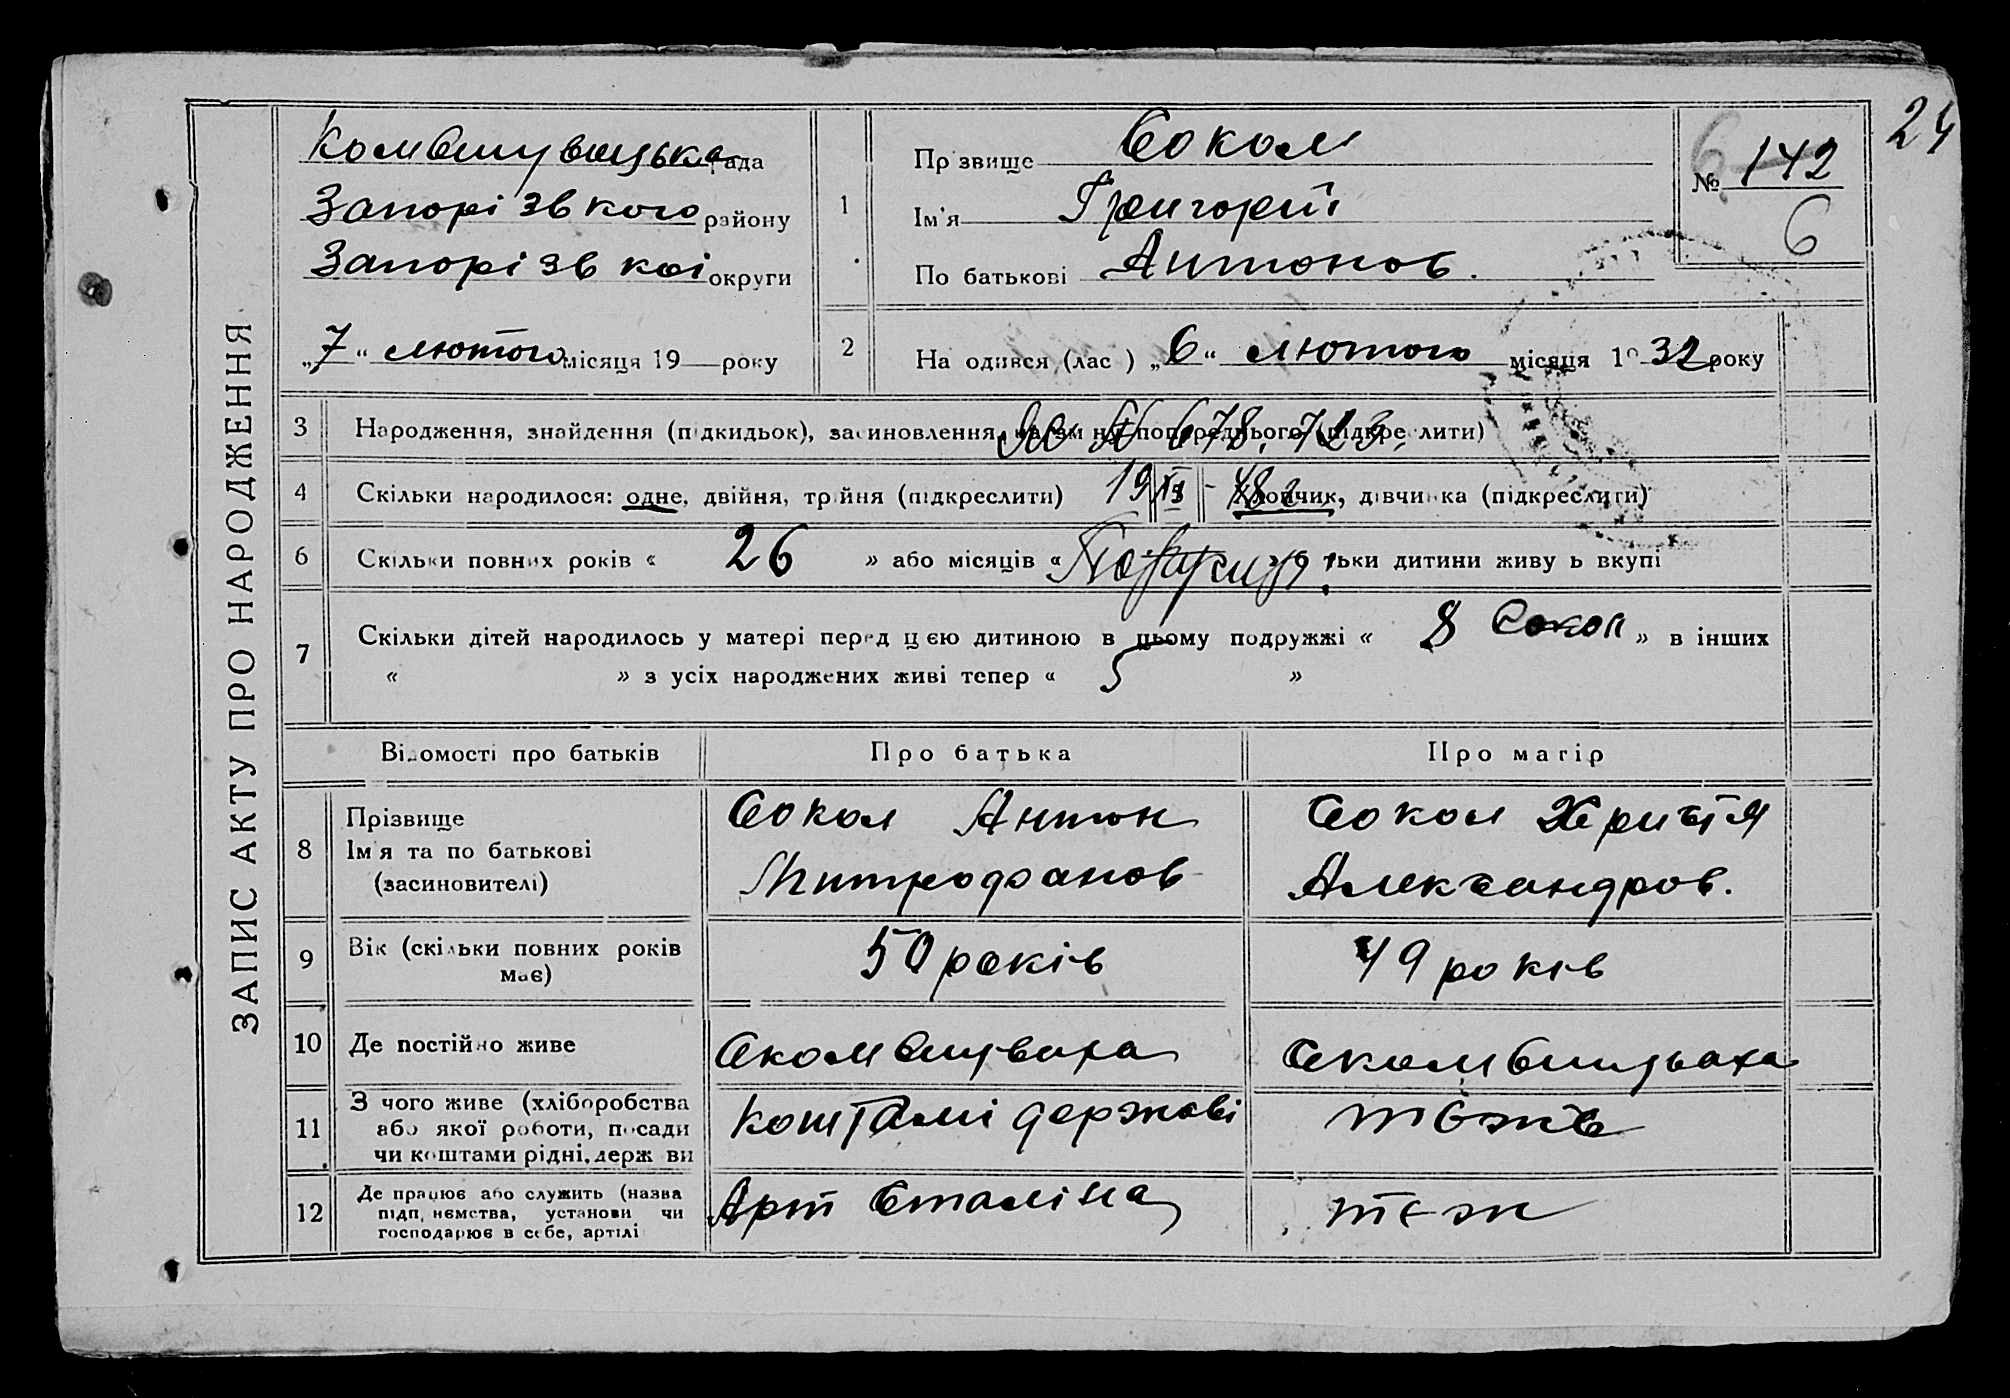 24
ЗАПИС АКТУ ПРО НАРОДЖЕННЯ
Комвишувацька рада
Запорізького району
Запорізької округи
„7“ лютого місяця 19 року
1
Прізвище Сокол
Ім'я Григорій
По батькові Антонов.
№ 142
6
6
2 На одився (лас ) „6“ лютого місяця 1932 року
3 Народження, знайдення (підкидьок), засиновлення, попереднього (підкреслити)
678. 723.
4 Скільки народилося: одне, двійня, трійня (підкреслити) хлопчик, дівчинка (підкреслити)
19 48
6 Скільки повних років « 26 » або місяців « тьки дитини живуть вкупі
7 Скільки дітей народилось у матері перед цією дитиною в цьому подружжі « 8 Сокол » в інших
« » з усіх народжених живі тепер « 5 »
Відомості про батьків Про батька Про матір
8 Прізвище
Ім'я та по батькові
(засиновителі)
Сокол Антон
Митрофанов
Сокол Христя
Александров.
9 Вік (скільки повних років
має)
50 років
49 років
10 Де постійно живе
с Комвишуваха
с Комвишуваха
11 З чого живе (хліборобства
або якої роботи, посади
чи коштами рідні, держ ви
Коштамі державі
теж
12 Де працює або служить (назва
підп, немства, установи чи
господарює в себе, артілі
Арт Сталіна
теж